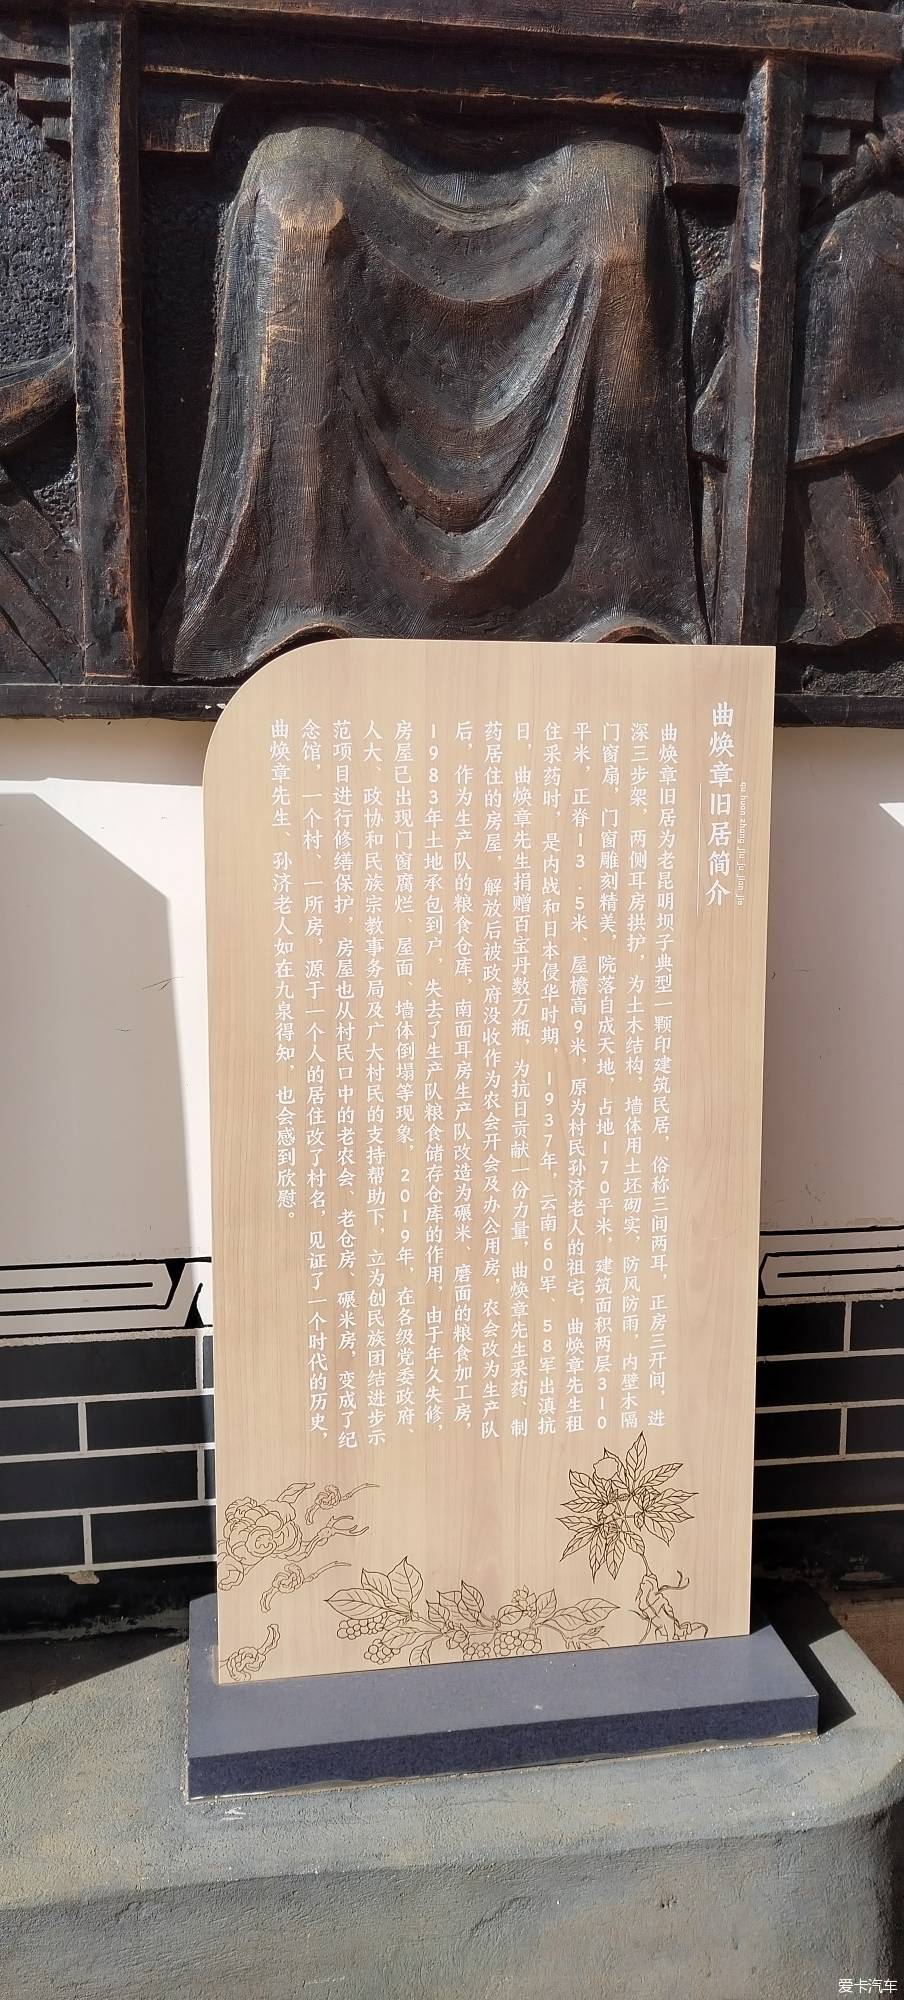 曲焕章旧居简介
qu huan zhang jiu ju jian jie
曲焕章旧居为老昆明坝子典型一颗印建筑民居，俗称三间两耳，正房三开间，进
深三步架，两侧耳房拱护，为土木结构，墙体用土坯砌实，防风防雨，内壁木隔
门窗扇，门窗雕刻精美，院落自成天地，占地170平米，建筑面积两层310
平米，正脊13.5米、屋檐高9米，原为村民孙济老人的祖宅，曲焕章先生租
住采药时，是内战和日本侵华时期，1937年，云南60军、58军出滇抗
日，曲焕章先生捐赠百宝丹数万瓶，为抗日贡献一份力量，曲焕章先生采药、制
药居住的房屋，解放后被政府没收作为农会开会及办公用房，农会改为生产队
后，作为生产队的粮食仓库，南面耳房生产队改造为碾米、磨面的粮食加工房，
1983年土地承包到户，失去了生产队粮食储存仓库的作用，由于年久失修，
房屋已出现门窗腐烂、屋面、墙体倒塌等现象，2019年，在各级党委政府、
人大、政协和民族宗教事务局及广大村民的支持帮助下，立为创民族团结进步示
范项目进行修缮保护，房屋也从村民口中的老农会、老仓房、碾米房，变成了纪
念馆，一个村、一所房，源于一个人的居住改了村名，见证了一个时代的历史，
曲焕章先生、孙济老人如在九泉得知，也会感到欣慰。
爱卡汽车